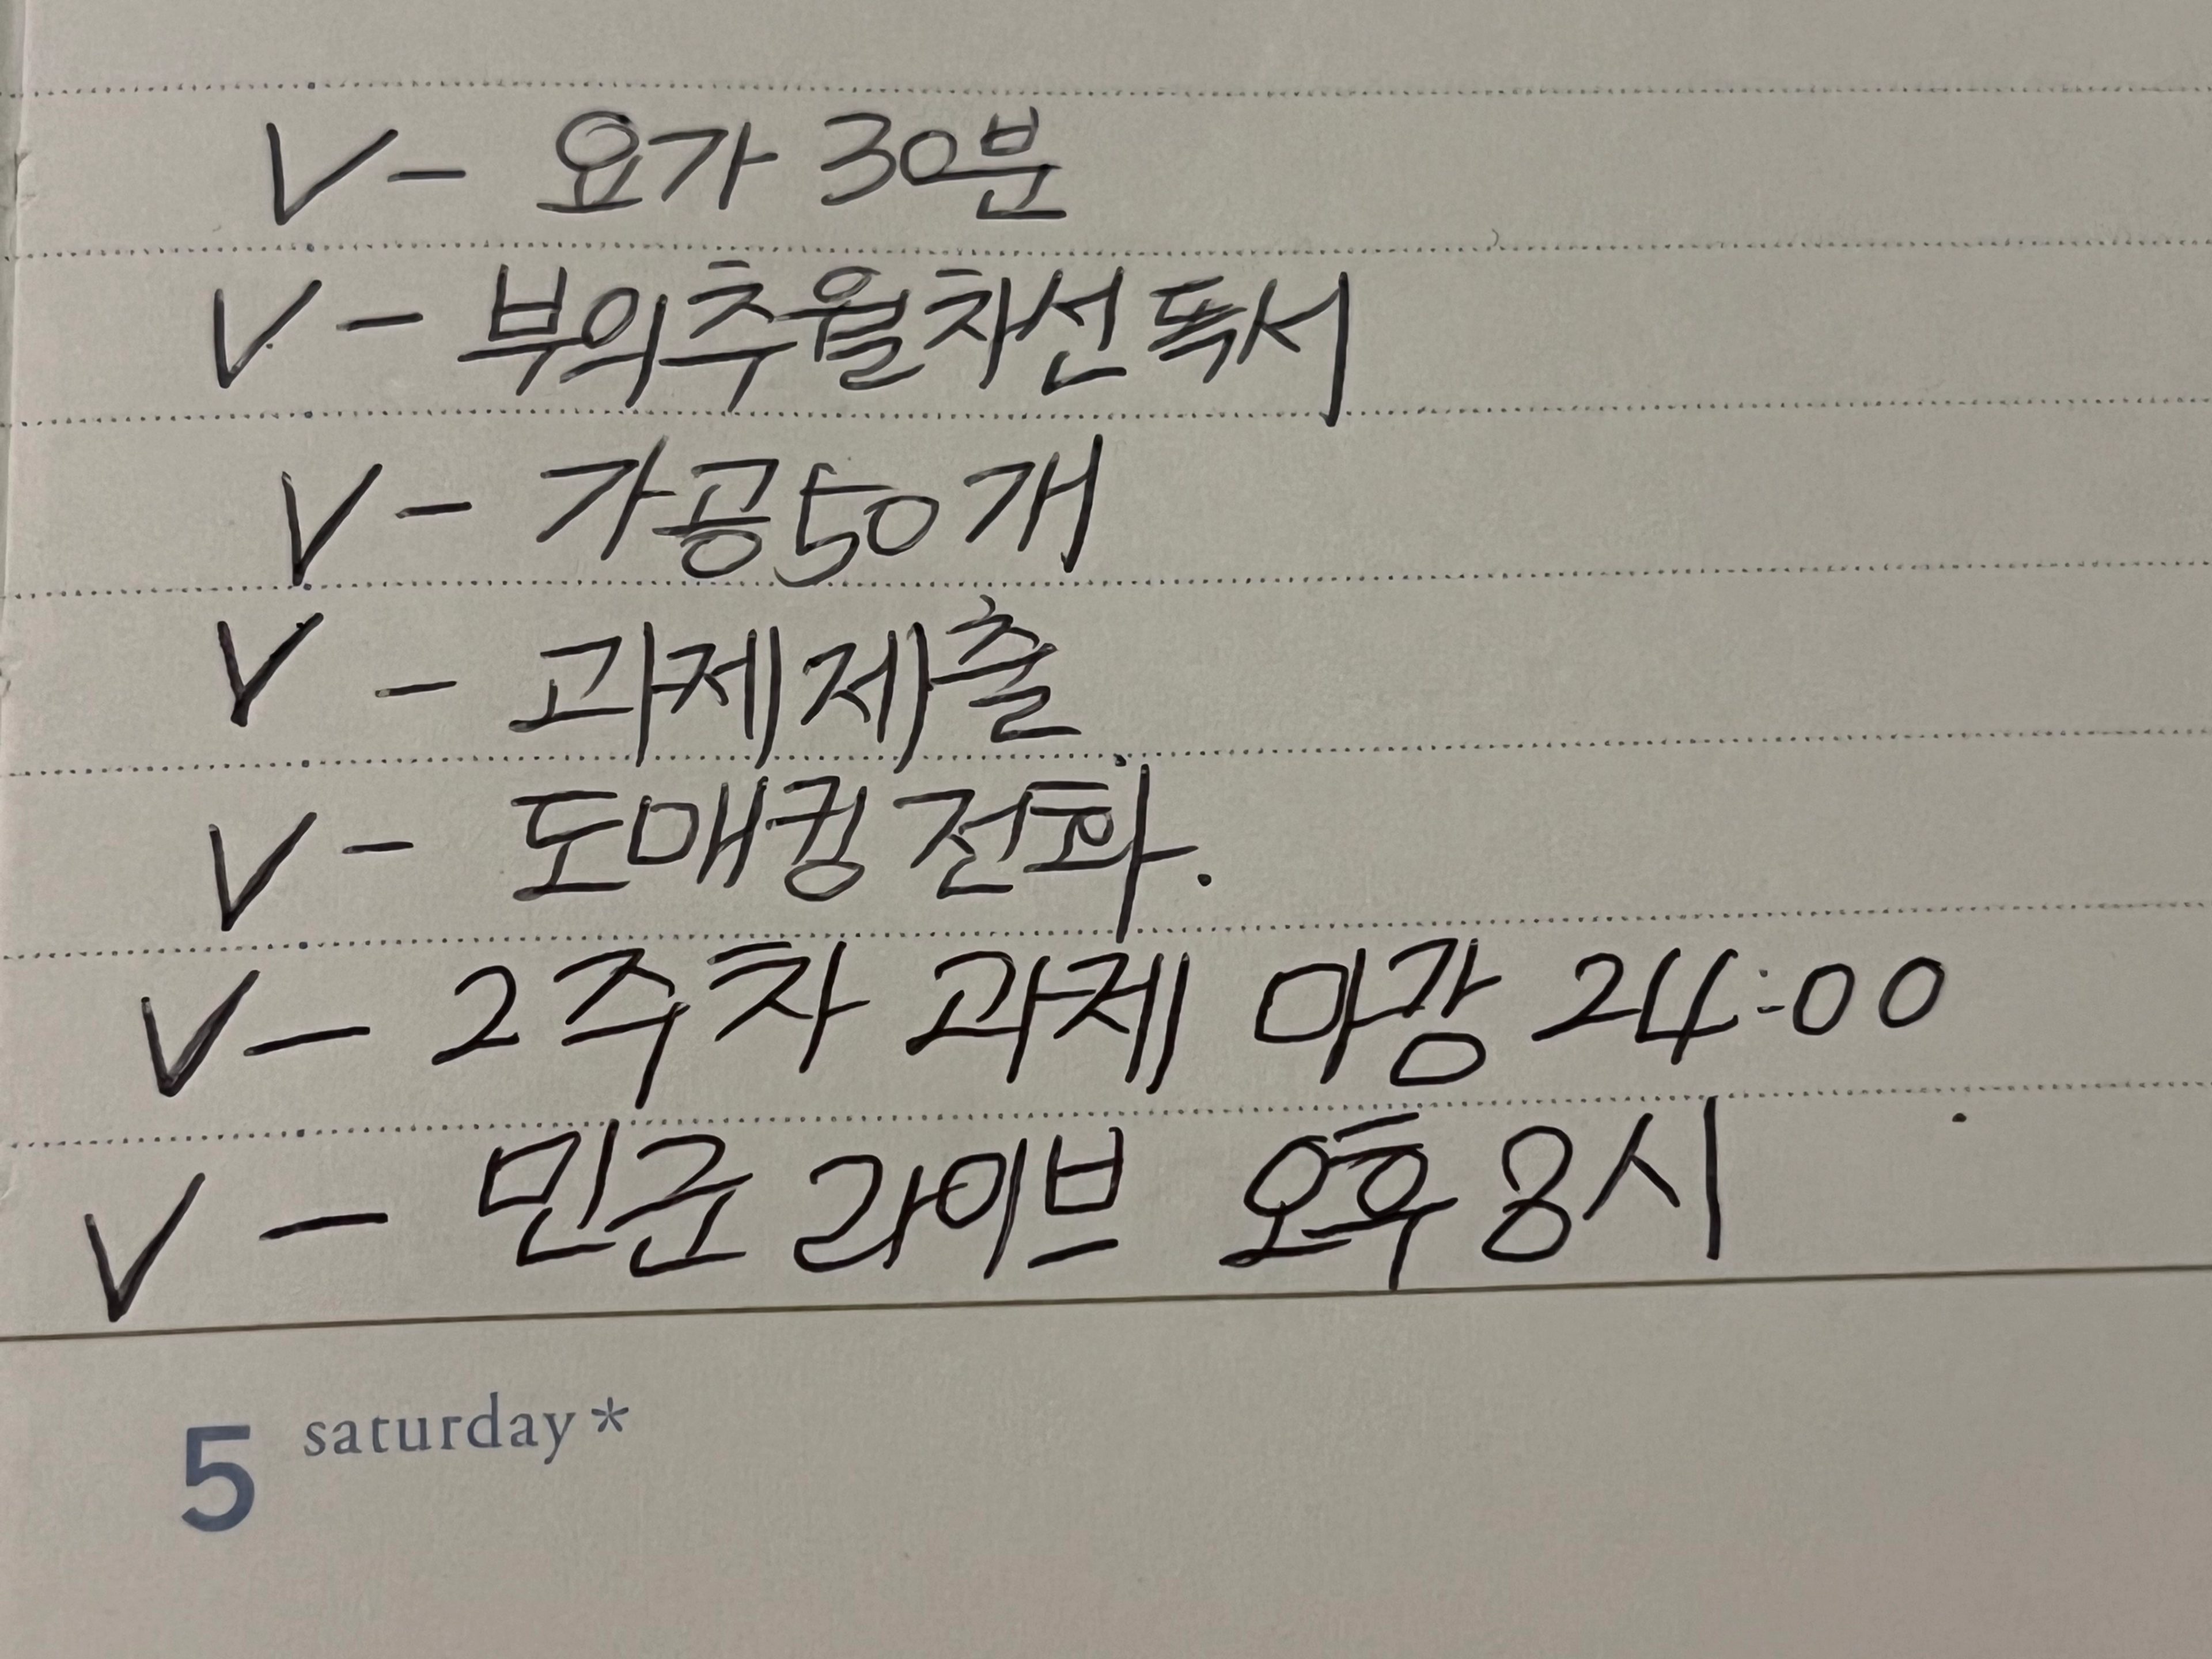 V - 요가 30분
V - 부의추월차선 독서
V - 가공50개
V - 과제제출
V - 도매킹 전화.
V - 2주차 과제 마강 24:00
V - 민군 라이브 오후 8시
5 saturday*